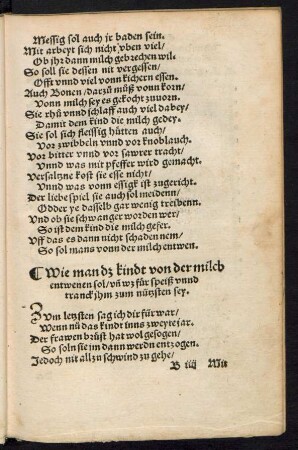 Messig sol auch ir baden sein.
Mit arbeyt sich nicht vben viel/
Ob jhr dann milch gebrechen wil.
So soll sie dessen nit vergessen/
Offt vnnd vonn kichern essen.
Auch Bonen/ darzů můß vonn korn/
Vonn milch sey es gekocht zuuorn.
Sie rhů vnnd schlaff auch viel dabey/
Damit dem kind die milch gedey.
Sie sol sich fleissig hütten auch/
Vor zwibbeln vnnd vor knoblauch.
Vor bitter vnnd vor sawrer tracht/
Vnnd was mit pfeffer wird gemacht.
Versaltzne kost sie esse nicht/
Vnnd was vonn essigk ist zugericht.
Der liebe spiel sie auch sol meidenn/
Odder ye dasselb gar wenig treibenn.
Vnd ob sie schwanger worden wer/
So ist dem kind die milch gefer.
Vff das es dann nicht schaden nem/
So sol mans vonn der milch entwen.
¶ Wie man dz kindt von der milch
entwenen sol/ vñ wz für speiß vnnd
tranck jhm zum nützsten sey.
Zvm letzsten sag ich dir für war/
Wenn nů das kindt inns zweyte jar.
Der frawen brüst hat wol gesogen/
So soln sie im dann werdn entzogen.
Jedoch nit all zu schwind zu gehe/
B iiij Mit